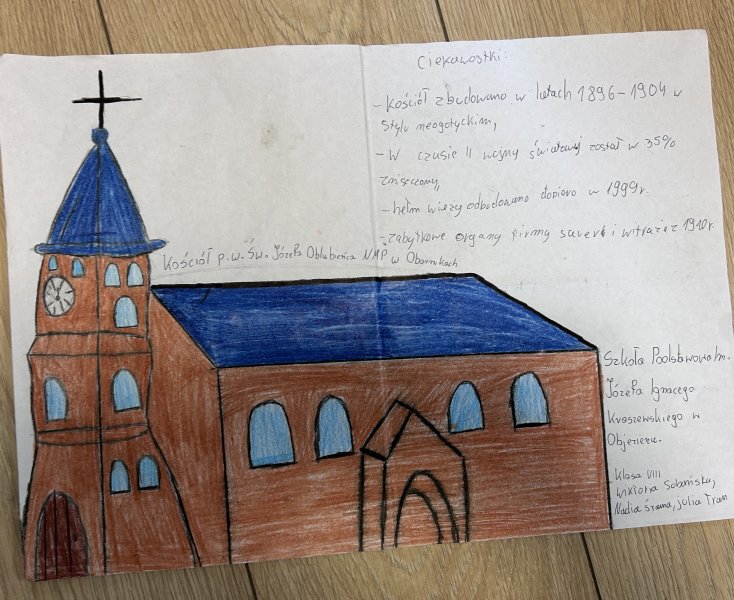 Ciekawostki:
- Kościół zbudowano w latach 1896-1904 w
stylu neogotyckim,
- W czasie II wojny światowej został w 35%
zniszczony,
- hełm wieży odbudowano dopiero w 1999r.
- zabytkowe organy firmy sauer i witraże z 1910r.
Kościół p.w. Św. Józefa Oblubieńca NMP w Obornikach
Szkoła Podstawowa im.
Józefa Ignacego
Kraszewskiego w
Objezierzu.
- Klasa VIII
Wiktoria Sobańska,
Nadia Śrama, julia Tran